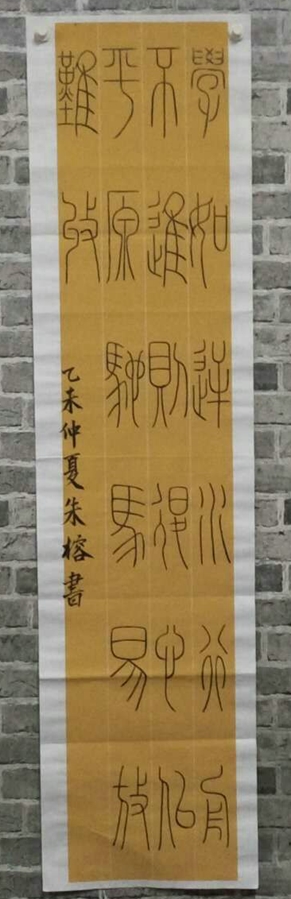 學如逆水行舟
不進則退心似
平原馳馬易放
難收
乙未仲夏朱榕書